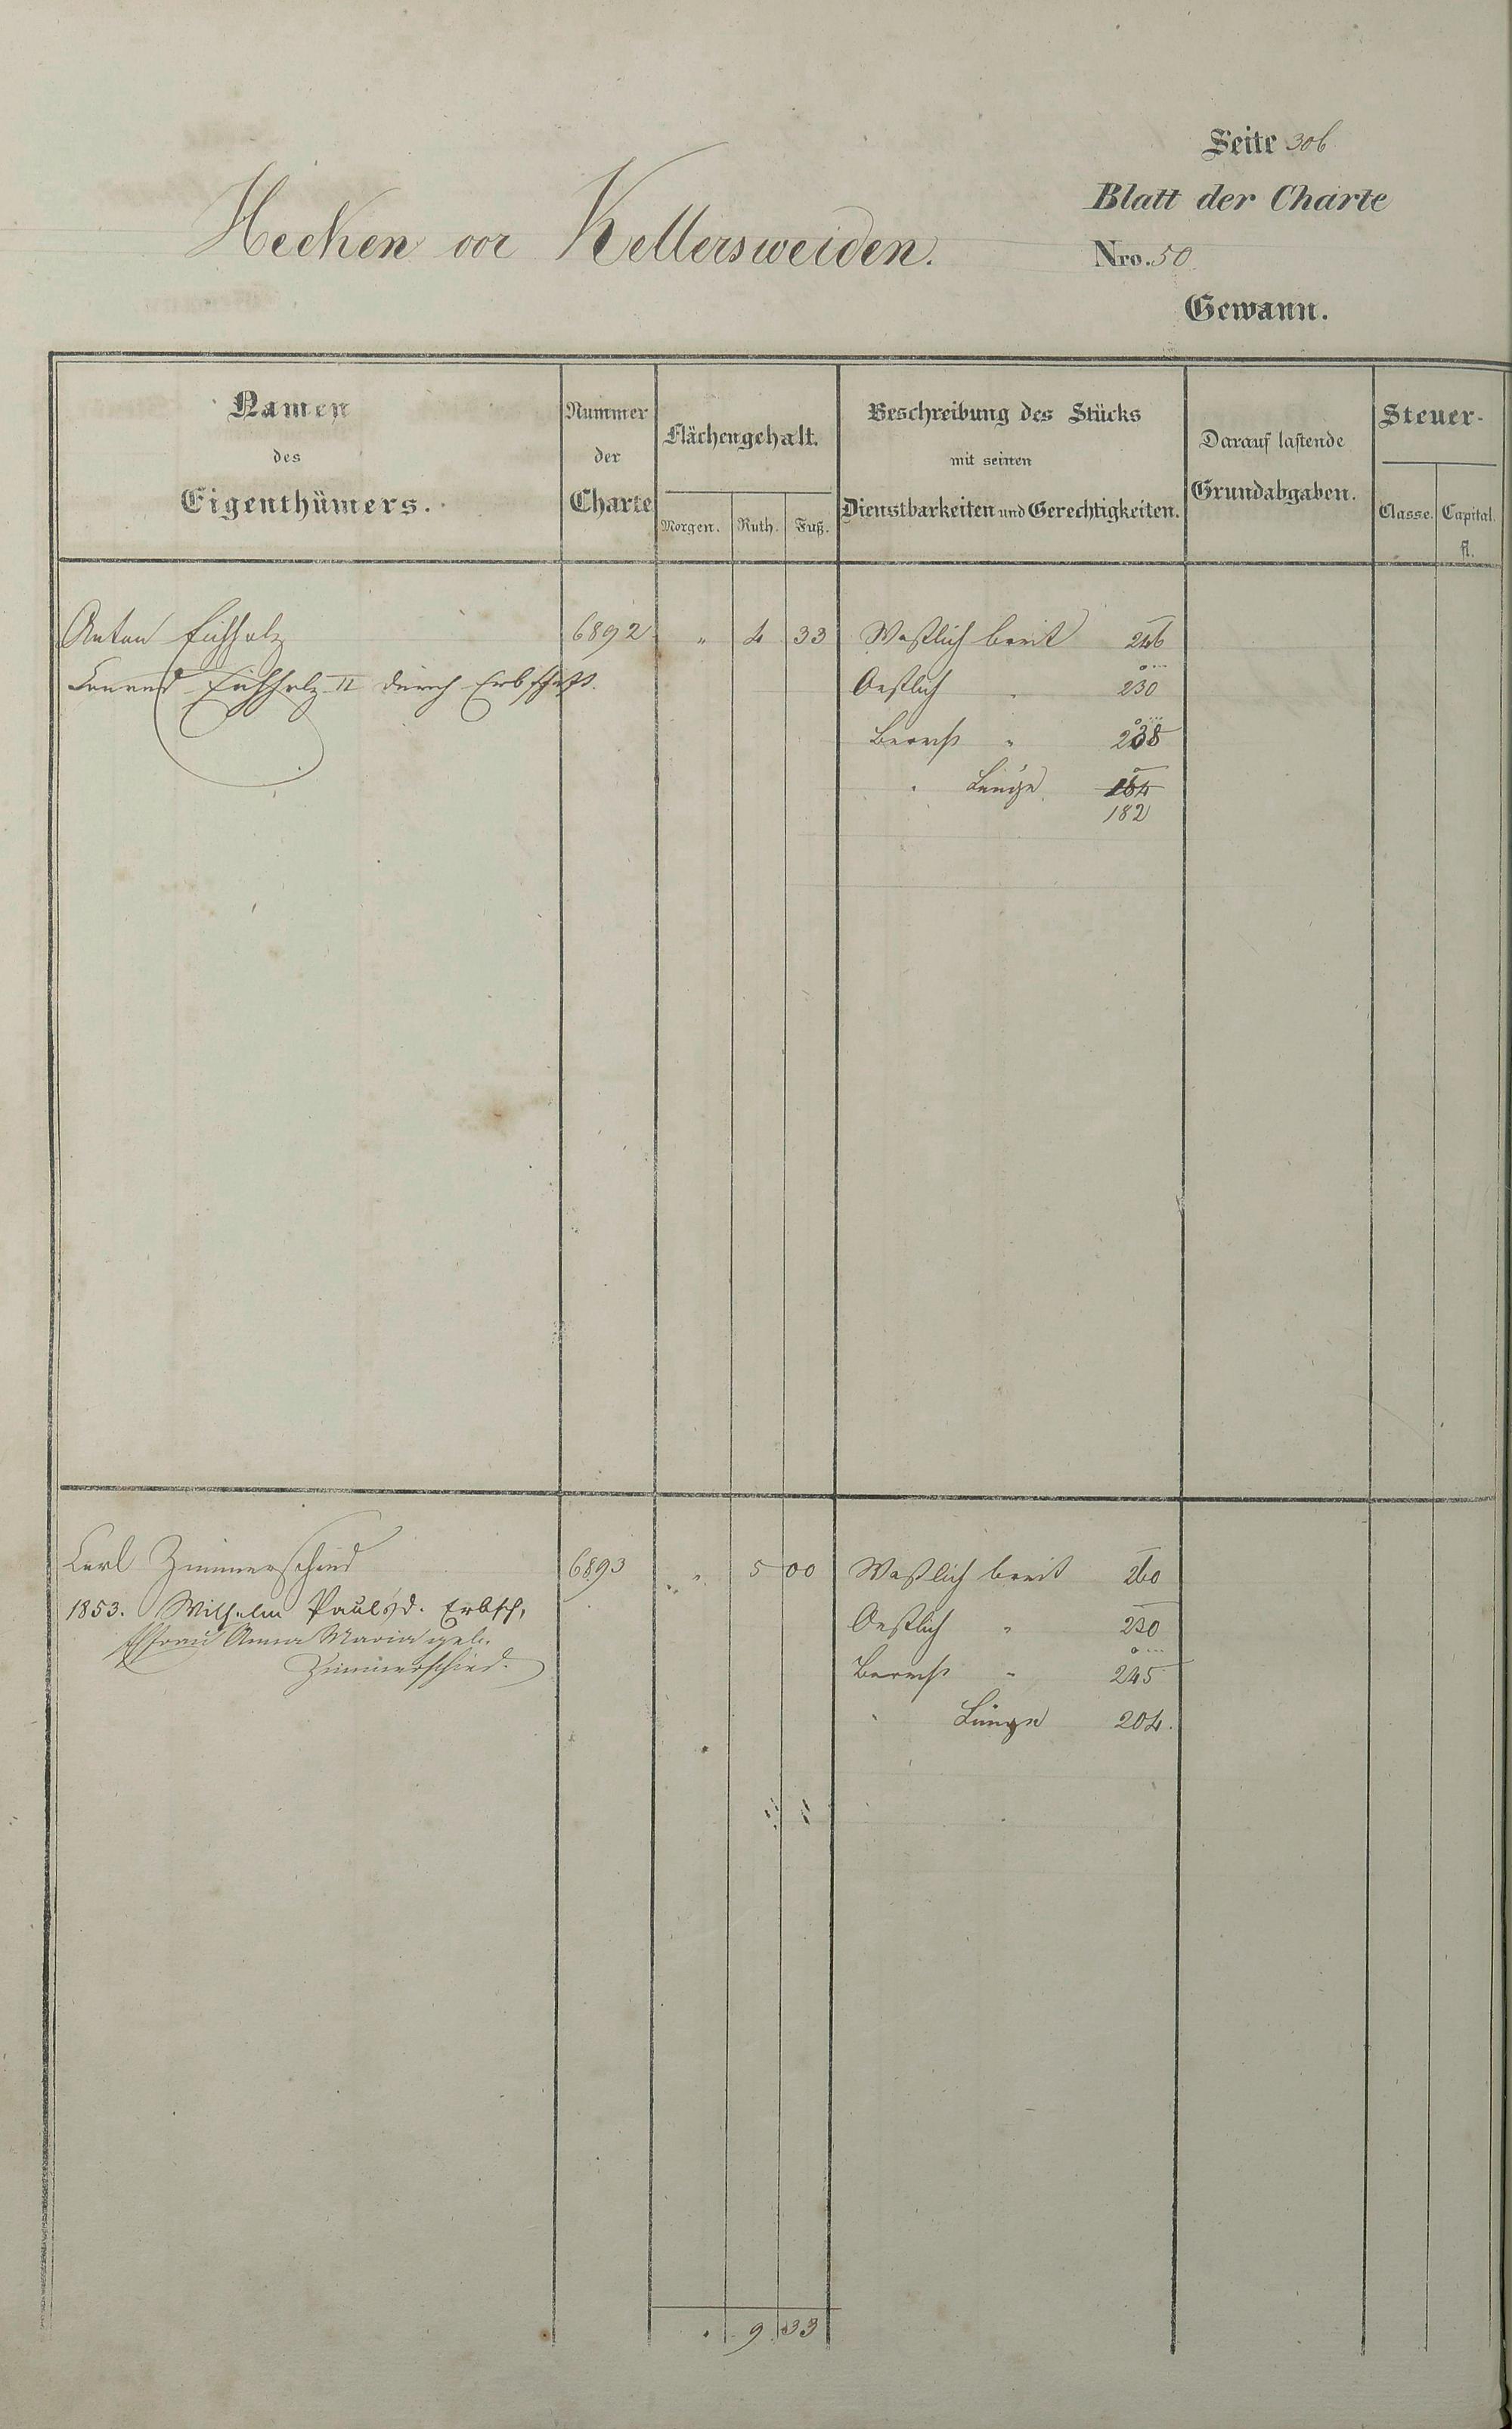 Seite 306
Blatt der Charte
Hecken vor Kellersweiden.
Nro. 50
Gewann.
Namen des Eigenthümers.
Nummer der Charte
Flächengehalt.
Morgen. Ruth. Fuß.
Beschreibung des Stücks
mit seinen
Dienstbarkeiten und Gerechtigkeiten.
Darauf lastende
Grundabgaben.
Steuer-
Classe. Capital.
fl.
Anton Eichholz 6892 " 4 33 Westlich breit 246
Conrad Eichholz II durch Erbschaft. Oestlich " 230
Berech " 238
" Länge 184
182
Carl Zimmerschied 6893 " 5 00 Westlich breit 260
1853. Wilhelm Paul's d. Erbsch. Oestlich " 230
Ehfrau Anna Maria geb.
Zimmerschied. Berech " 245
" Länge 204.
" 9 33